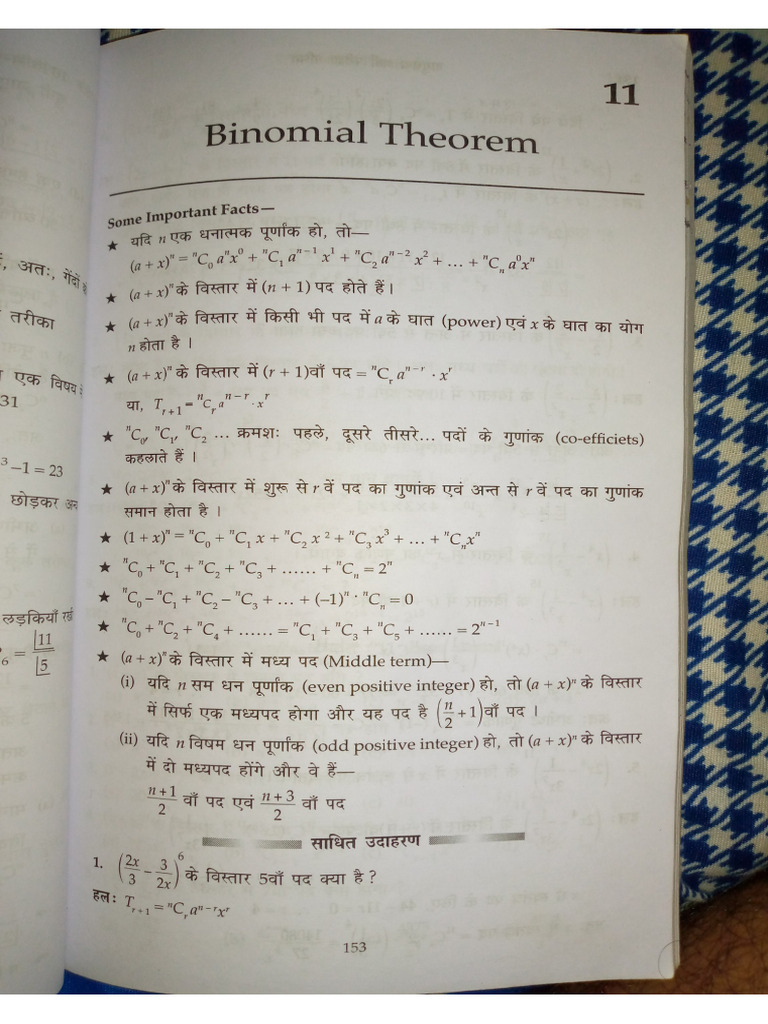 11
Binomial Theorem
Some Important Facts—
★ यदि n एक धनात्मक पूर्णांक हो, तो—
(a + x)ⁿ = ⁿC₀ aⁿx⁰ + ⁿC₁ aⁿ⁻¹ x¹ + ⁿC₂ aⁿ⁻² x² + … + ⁿCₙ a⁰xⁿ
★ (a + x)ⁿ के विस्तार में (n + 1) पद होते हैं।
★ (a + x)ⁿ के विस्तार में किसी भी पद में a के घात (power) एवं x के घात का योग
n होता है ।
★ (a + x)ⁿ के विस्तार में (r + 1)वाँ पद = ⁿCᵣ aⁿ⁻ʳ · xʳ
या, Tᵣ₊₁ = ⁿCᵣ aⁿ⁻ʳ · xʳ
★ ⁿC₀, ⁿC₁, ⁿC₂ … क्रमशः पहले, दूसरे तीसरे… पदों के गुणांक (co-efficiets)
कहलाते हैं ।
★ (a + x)ⁿ के विस्तार में शुरू से r वें पद का गुणांक एवं अन्त से r वें पद का गुणांक
समान होता है ।
★ (1 + x)ⁿ = ⁿC₀ + ⁿC₁ x + ⁿC₂ x² + ⁿC₃ x³ + … + ⁿCₙxⁿ
★ ⁿC₀ + ⁿC₁ + ⁿC₂ + ⁿC₃ + …… + ⁿCₙ = 2ⁿ
★ ⁿC₀ – ⁿC₁ + ⁿC₂ – ⁿC₃ + … + (–1)ⁿ · ⁿCₙ = 0
★ ⁿC₀ + ⁿC₂ + ⁿC₄ + …… = ⁿC₁ + ⁿC₃ + ⁿC₅ + …… = 2ⁿ⁻¹
★ (a + x)ⁿ के विस्तार में मध्य पद (Middle term)—
(i) यदि n सम धन पूर्णांक (even positive integer) हो, तो (a + x)ⁿ के विस्तार
में सिर्फ एक मध्यपद होगा और यह पद है (n/2 + 1)वाँ पद ।
(ii) यदि n विषम धन पूर्णांक (odd positive integer) हो, तो (a + x)ⁿ के विस्तार
में दो मध्यपद होंगे और वे हैं—
(n + 1)/2 वाँ पद एवं (n + 3)/2 वाँ पद
साधित उदाहरण
1. (2x/3 – 3/2x)⁶ के विस्तार 5वाँ पद क्या है ?
हल: Tᵣ₊₁ = ⁿCᵣaⁿ⁻ʳxʳ
153
अतः, गेंदों
तरीका
एक विषय
31
³ –1 = 23
छोड़कर
लड़कियाँ
₆ = 11
5